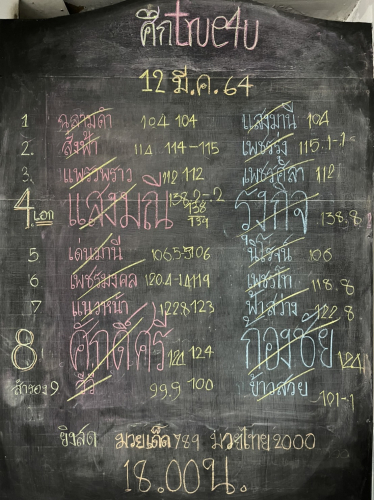 ศึกtrue4u
12 มี.ค. 64
1 ฉลามดำ 104 104 แสงมานี 104
2. สิงห์ฟ้า 114 114-115 เพชรรุ่ง 115.1-1
3. แพรวพราว 112 112 เพชรศิลา 112
4.เอก แสงมณี 138.2-.2 138 139 รุ่งกิจ 138.8
5 เด่นมานี 106.5 106 นิโรจน์ 106
6 เพชรมงคล 120.4-1 119 เพชรโท 118.8
7 แนวหน้า 122.8 123 ฟ้าสว่าง 122.8
8 ศักดิ์ศรี 124 124 ก้องชัย 124
สำรอง 9 สีวิ 99.9-100 ข้าวสวย 101-1
ยิงสด มวยเด็ด789 มวยไทย2000
18.00น.